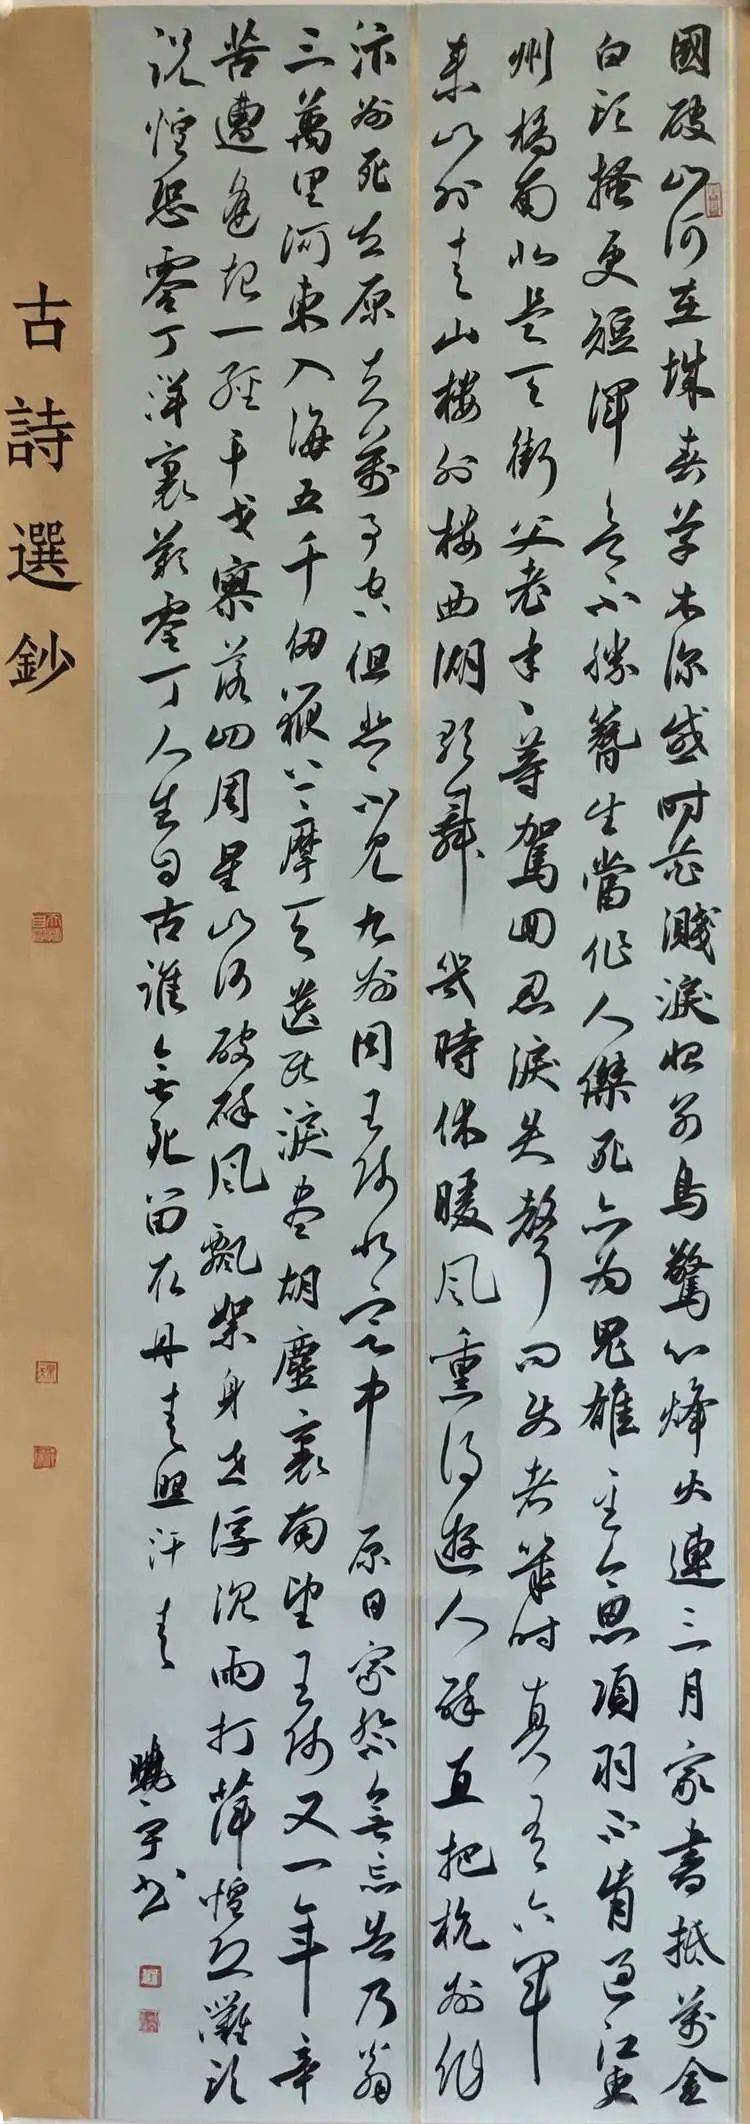 國破山河在城春草木深感時花濺淚恨別鳥驚心烽火連三月家書抵萬金
白頭搔更短渾欲不勝簪生當作人傑死亦為鬼雄至今思項羽不肯過江東
州橋南北是天街父老年年等駕回忍淚失聲問使者幾時真有六軍
來山外青山樓外樓西湖歌舞幾時休暖風熏得遊人醉直把杭州作
汴州死去原知萬事空但悲不見九州同王師北定中原日家祭無忘告乃翁
三萬里河東入海五千仞嶽上摩天遺民淚盡胡塵裏南望王師又一年辛
苦遭逢起一經干戈寥落四周星山河破碎風飄絮身世浮沉雨打萍惶恐灘頭
說惶恐零丁洋裏歎零丁人生自古誰無死留取丹青照汗青
曉宇書
古詩選鈔